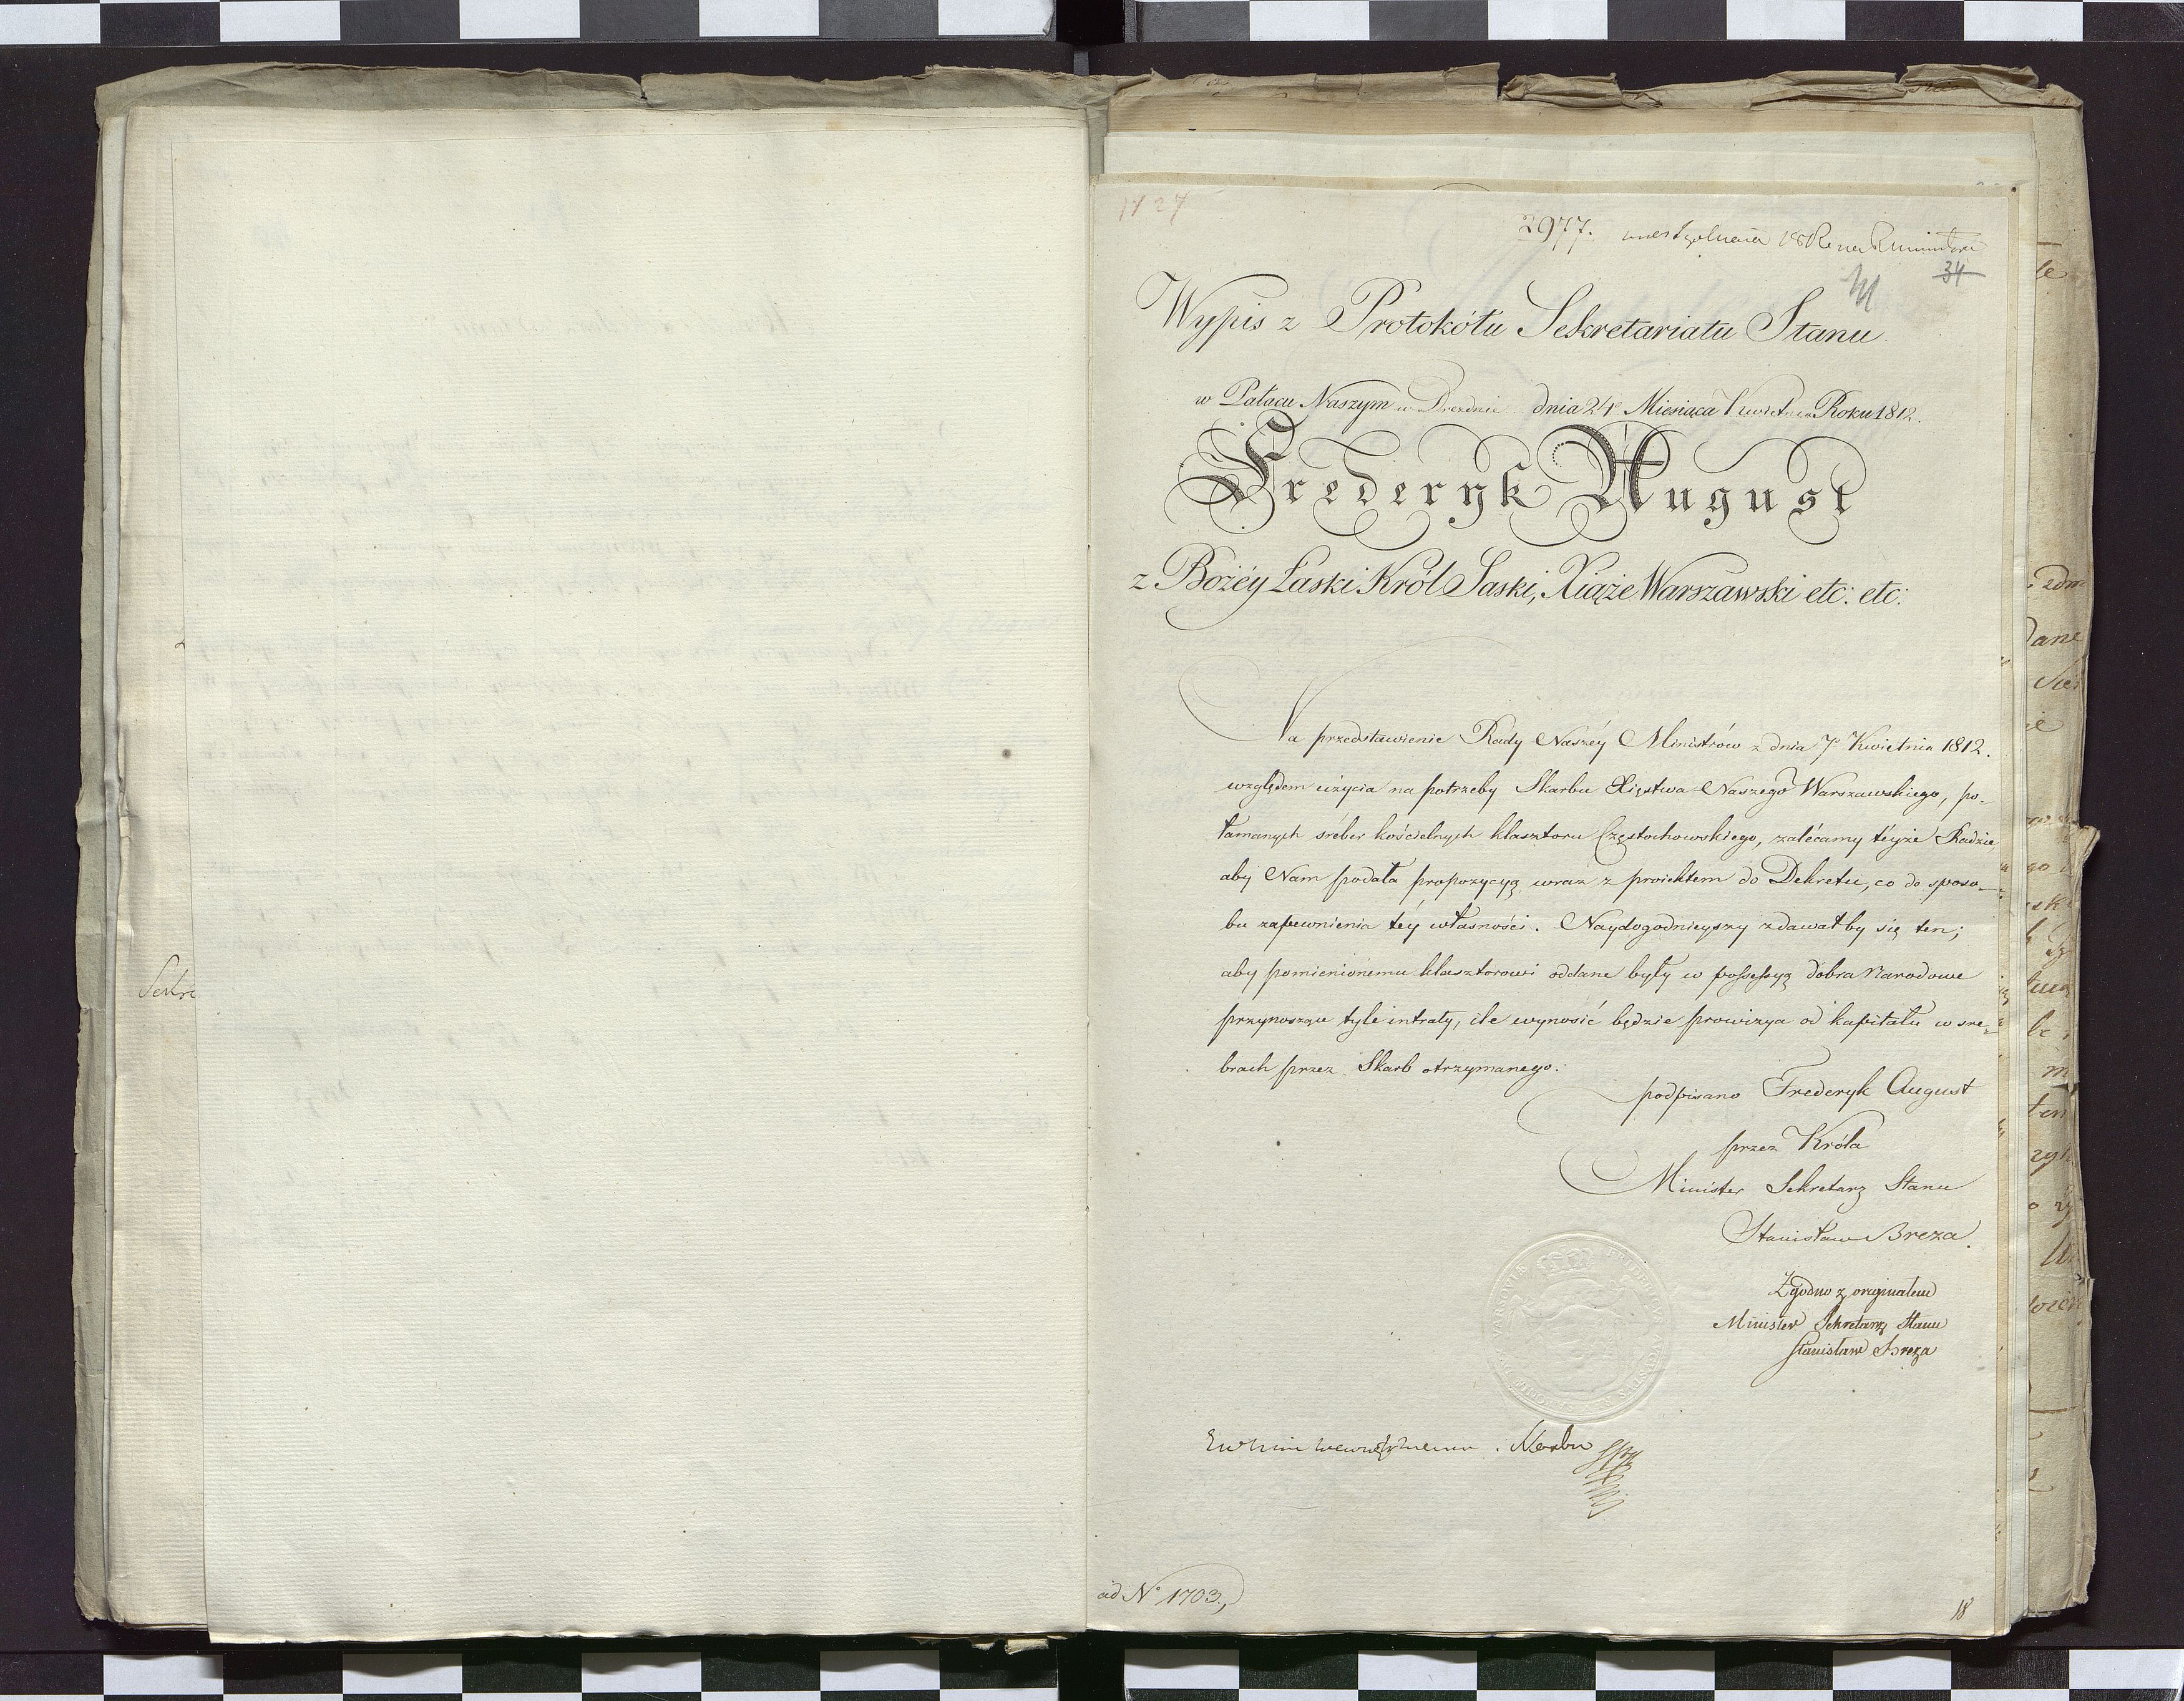 1727
2977.
34
Wypis z Protokółu Sekretariatu Stanu
w Pałacu Naszym w Dreznie dnia 24o Miesiąca Kwietnia Roku 1812.
Frederyk August
z Bożéy Łaski Król Saski, Xiąże Warszawski etc: etc:
Na przedstawienie Rady Naszéy Ministrów z dnia 7o Kwietnia 1812.
względem użycia na potrzeby Skarbu Xięstwa Naszego Warszawskiego, po-
łamanych śreber kościelnych klasztoru Częstochowskiego, zalécamy téyże Radzie
aby Nam podała propozycyą wraz z proiektem do Dekretu, co do sposo-
bu zapewnienia téy własności. Naydogodnieyszy zdawałby się ten;
aby pomienionemu klasztorowi oddane były w possessyą dobra Narodowe
przynoszące tyle intraty, ile wynosić będzie prowizya od kapitału w sre-
brach przez Skarb otrzymanego.
podpisano Frederyk August
przez Króla
Minister Sekretarz Stanu
Stanisław Breza.
Zgodno z originałem
Minister Sekretarz Stanu
Stanisław Breza
Skarbu
ad No 1703.
18
Sekre